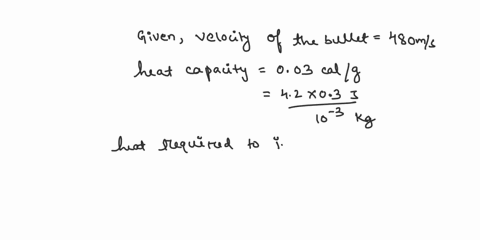 Given, velocity of the bullet = 480m/s
heat capacity = 0.03 cal/g
= 4.2 × 0.3 J
10⁻³ kg
heat required to i.